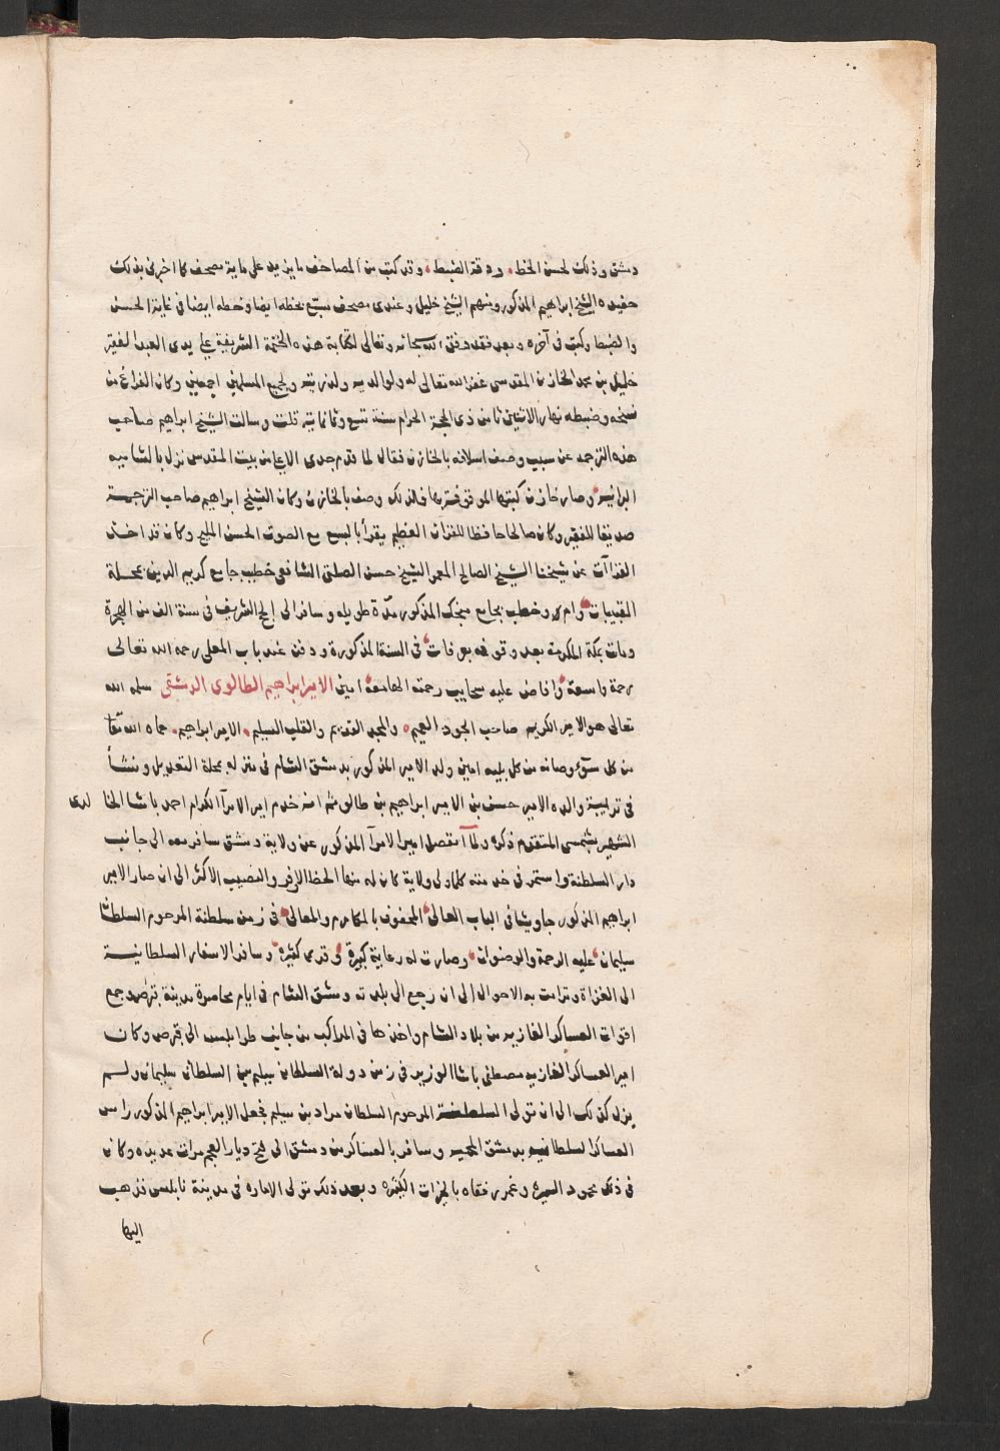 دمشق وذلك لحسن الخط، ودقة الضبط، وقد كتب من المصاحف ما يزيد على ماية مصحف كما اخبرني بذلك
حفيده الشيخ ابراهيم المذكور ومنهم الشيخ خليل وعندي مصحف سبّع بخطه ايضا وخطه ايضا في غاية الحسن
والضبط وكتب في آخره وبعد فقد وفق الله سبحانه وتعالى لكتابة هذه الختمة الشريفة على يدي العبد الفقير
خليل بن محمد الخازن المقدسي غفر الله تعالى له ولوالديه ولذريته ولجميع المسلمين اجمعين وكان الفراغ من
نسخه وضبطه نهار الاثنين ثامن ذي الحجة الحرام سنة تسع وثمانماية قلت وسالت الشيخ ابراهيم صاحب
هذه الترجمة عن سبب وصف اسلافه بالخازن فقال لما قدم جدي الاعلى من بيت المقدس نزل بالشاميه
البرانيه وصار خازن كتبها الموقوفة بها فلذلك وصف بالخازن وكان الشيخ ابراهيم صاحب الترجمة
صديقا للفقير وكان صالحا حافظا للقران العظيم يقرأ بالسبع مع الصوت الحسن المليح وكان قد اخذ
القراآت عن شيخنا الشيخ الصالح المعمر الشيخ حسن الصلتي الشافعي خطيب جامع كريم الدين بمحلة
القبيبات وام وخطب بجامع منجك المذكور مدّة طويله وسافر الى الحج الشريف في سنة الف من الهجرة
ومات بمكة المكرمة بعد وقوفه بعرفات في السنة المذكورة ودفن عند باب المعلى رحمه الله تعالى
رحمة واسعة وافاض عليه سحايب رحمته الهامعة امين الامير ابراهيم الطالوي الدمشقي سلمه الله
تعالى هو الامير الكريم صاحب الجود العميم، والمجد القديم والقلب السليم، الامير ابراهيم، حماه الله تعا
من كل سوء وصانه من كل بليه امين ولد الامير المذكور بدمشق الشام في منزله بمحلة التعديل ونشأ
في تربية والده الامير حسن بن الامير ابراهيم بن طالو ثم انه خدم امير الامرآ الكرام احمد باشا الخا لدى
الشهير بشمسي المتقدم ذكره ولمّا انفصل امير الامرآ المذكور عن ولاية دمشق سافر معه الى جانب
دار السلطنة واستمر في خدمته كلما ولى ولاية كان له منها الحظ الاوفر والنصيب الاكثر الى ان صار الامير
ابراهيم المذكور جاويشا في الباب العالى المحفوف بالمكارم والمعالي في زمن سلطنة المرحوم السلطا
سليمان عليه الرحمة والرضوان، وصارت له رعاية كبيرة وقدمى كثيرة وسافر الاسفار السلطانية
الى الغزاة وترامت به الاحوال الى ان رجع الى بلدته دمشق الشام في ايام محاصرة مدينة قبرص وجمع
اقوات العساكر الغازيه من بلاد الشام واخذها في المراكب من جانب طرابلس الى قبرص وكان
امير العساكر الغازيه مصطفى باشا الوزير في زمن دولة السلطان سليم بن السلطان سليمان ولم
يزل كذلك الى ان تولى السلطنة المرحوم السلطان مراد بن سليم فجعل الامير ابراهيم المذكور راس
العساكر السلطانيه بدمشق المحميه وسافر بالعساكر من دمشق الى فتح ديار العجم مرات عديده وكان
في ذلك محمود السيره وغمر رفقاه بالخيرات الكثيره وبعد ذلك تولى الاماره في مدينة نابلس فذهب
اليها